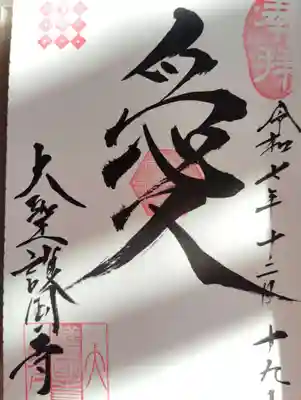 奉拝
令和七年十二月十九日
愛
大聖護国寺